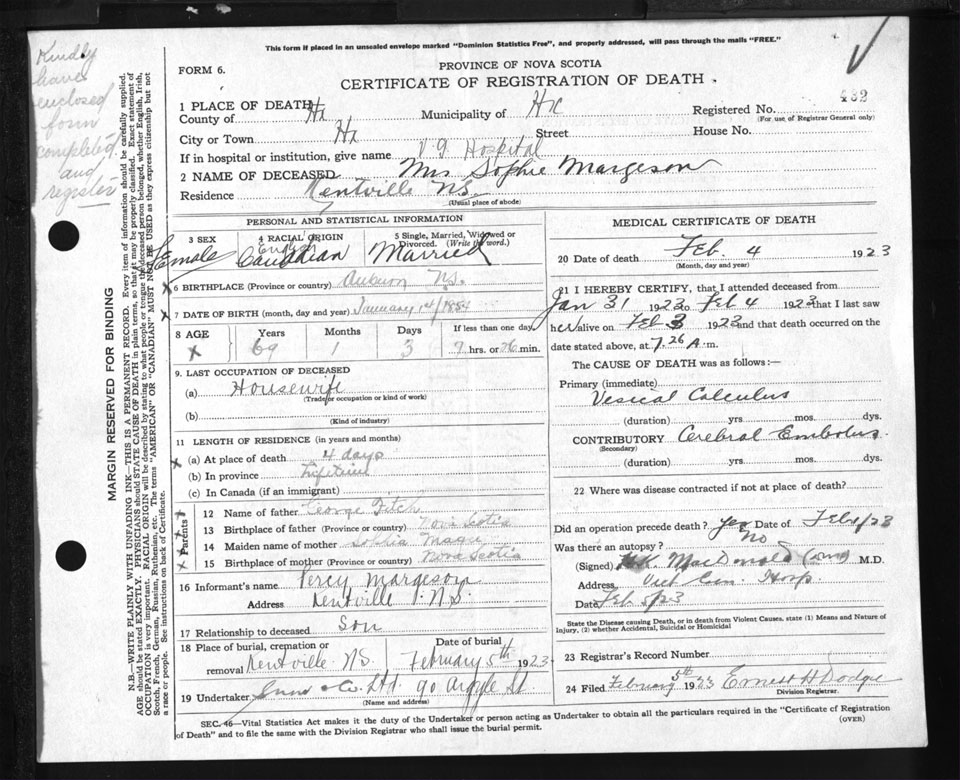 This form if placed in an unsealed envelope marked "Dominion Statistics Free", and properly addressed, will pass through the mails "FREE."
Kindly
leave
enclosed
form
completed
and
register
FORM 6.
PROVINCE OF NOVA SCOTIA
CERTIFICATE OF REGISTRATION OF DEATH
1 PLACE OF DEATH
County of Hx Municipality of Hx Registered No. 432
(For use of Registrar General only)
City or Town Hx Street House No.
If in hospital or institution, give name V G Hospital
2 NAME OF DECEASED Mrs Sophie Margeson
Residence Kentville N.S.
(Usual place of abode)
MARGIN RESERVED FOR BINDING
N.B.—WRITE PLAINLY WITH UNFADING INK—THIS IS A PERMANENT RECORD. Every item of information should be carefully supplied.
AGE should be stated EXACTLY. PHYSICIANS should STATE CAUSE OF DEATH in plain terms, so that it may be properly classified. Exact statement of
OCCUPATION is very important. RACIAL ORIGIN will be described by stating to what people or tongue the deceased person belonged, whether English, Irish,
Scotch, French, German, Russian, Ruthenian, etc. The terms "AMERICAN" OR "CANADIAN" MUST NOT BE USED as they express citizenship but not
a race or people. See instructions on back of Certificate.
PERSONAL AND STATISTICAL INFORMATION
3 SEX
Female
4 RACIAL ORIGIN
Canadian
5 Single, Married, Widowed or
Divorced. (Write the word.)
Married
6 BIRTHPLACE (Province or country) Auburn N.S.
7 DATE OF BIRTH (month, day and year) January 1st/1854
8 AGE
Years Months Days If less than one day
69 1 3 7 hrs. or 26 min.
9. LAST OCCUPATION OF DECEASED
(a) Housewife
(Trade or occupation or kind of work)
(b)
(Kind of industry)
11 LENGTH OF RESIDENCE (in years and months)
(a) At place of death 4 days
(b) In province Lifetime
(c) In Canada (if an immigrant)
Parents
12 Name of father George Fitch
13 Birthplace of father (Province or country) Nova Scotia
14 Maiden name of mother Sophia Magee
15 Birthplace of mother (Province or country) Nova Scotia
16 Informant's name Percy Margeson
Address Kentville N.S.
17 Relationship to deceased Son
18 Place of burial, cremation or
removal Kentville N.S.
Date of burial
February 5th 1923
19 Undertaker Snow & Co. Ltd. 90 Argyle St
(Name and address)
MEDICAL CERTIFICATE OF DEATH
20 Date of death Feb. 4 1923
(Month, day and year)
21 I HEREBY CERTIFY, that I attended deceased from
Jan 31 1923 to Feb 4 1923 that I last saw
her alive on Feb 3 1923 and that death occurred on the
date stated above, at 7.26 A.m.
The CAUSE OF DEATH was as follows:—
Primary (immediate)
Vesical Calculus
(duration) yrs. mos. dys.
CONTRIBUTORY Cerebral Embolus
(Secondary)
(duration) yrs. mos. dys.
22 Where was disease contracted if not at place of death?
Did an operation precede death? yes Date of Feb 1/23
Was there an autopsy? No
(Signed) MacDonald M.D.
Address Vict Gen. Hosp.
Date Feb 5/23
State the Disease causing Death, or in death from Violent Causes, state (1) Means and Nature of
Injury, (2) whether Accidental, Suicidal or Homicidal
23 Registrar's Record Number
24 Filed February 5th 1923 Ernest H Dodge
Division Registrar.
SEC. 46—Vital Statistics Act makes it the duty of the Undertaker or person acting as Undertaker to obtain all the particulars required in the "Certificate of Registration
of Death" and to file the same with the Division Registrar who shall issue the burial permit.
(OVER)